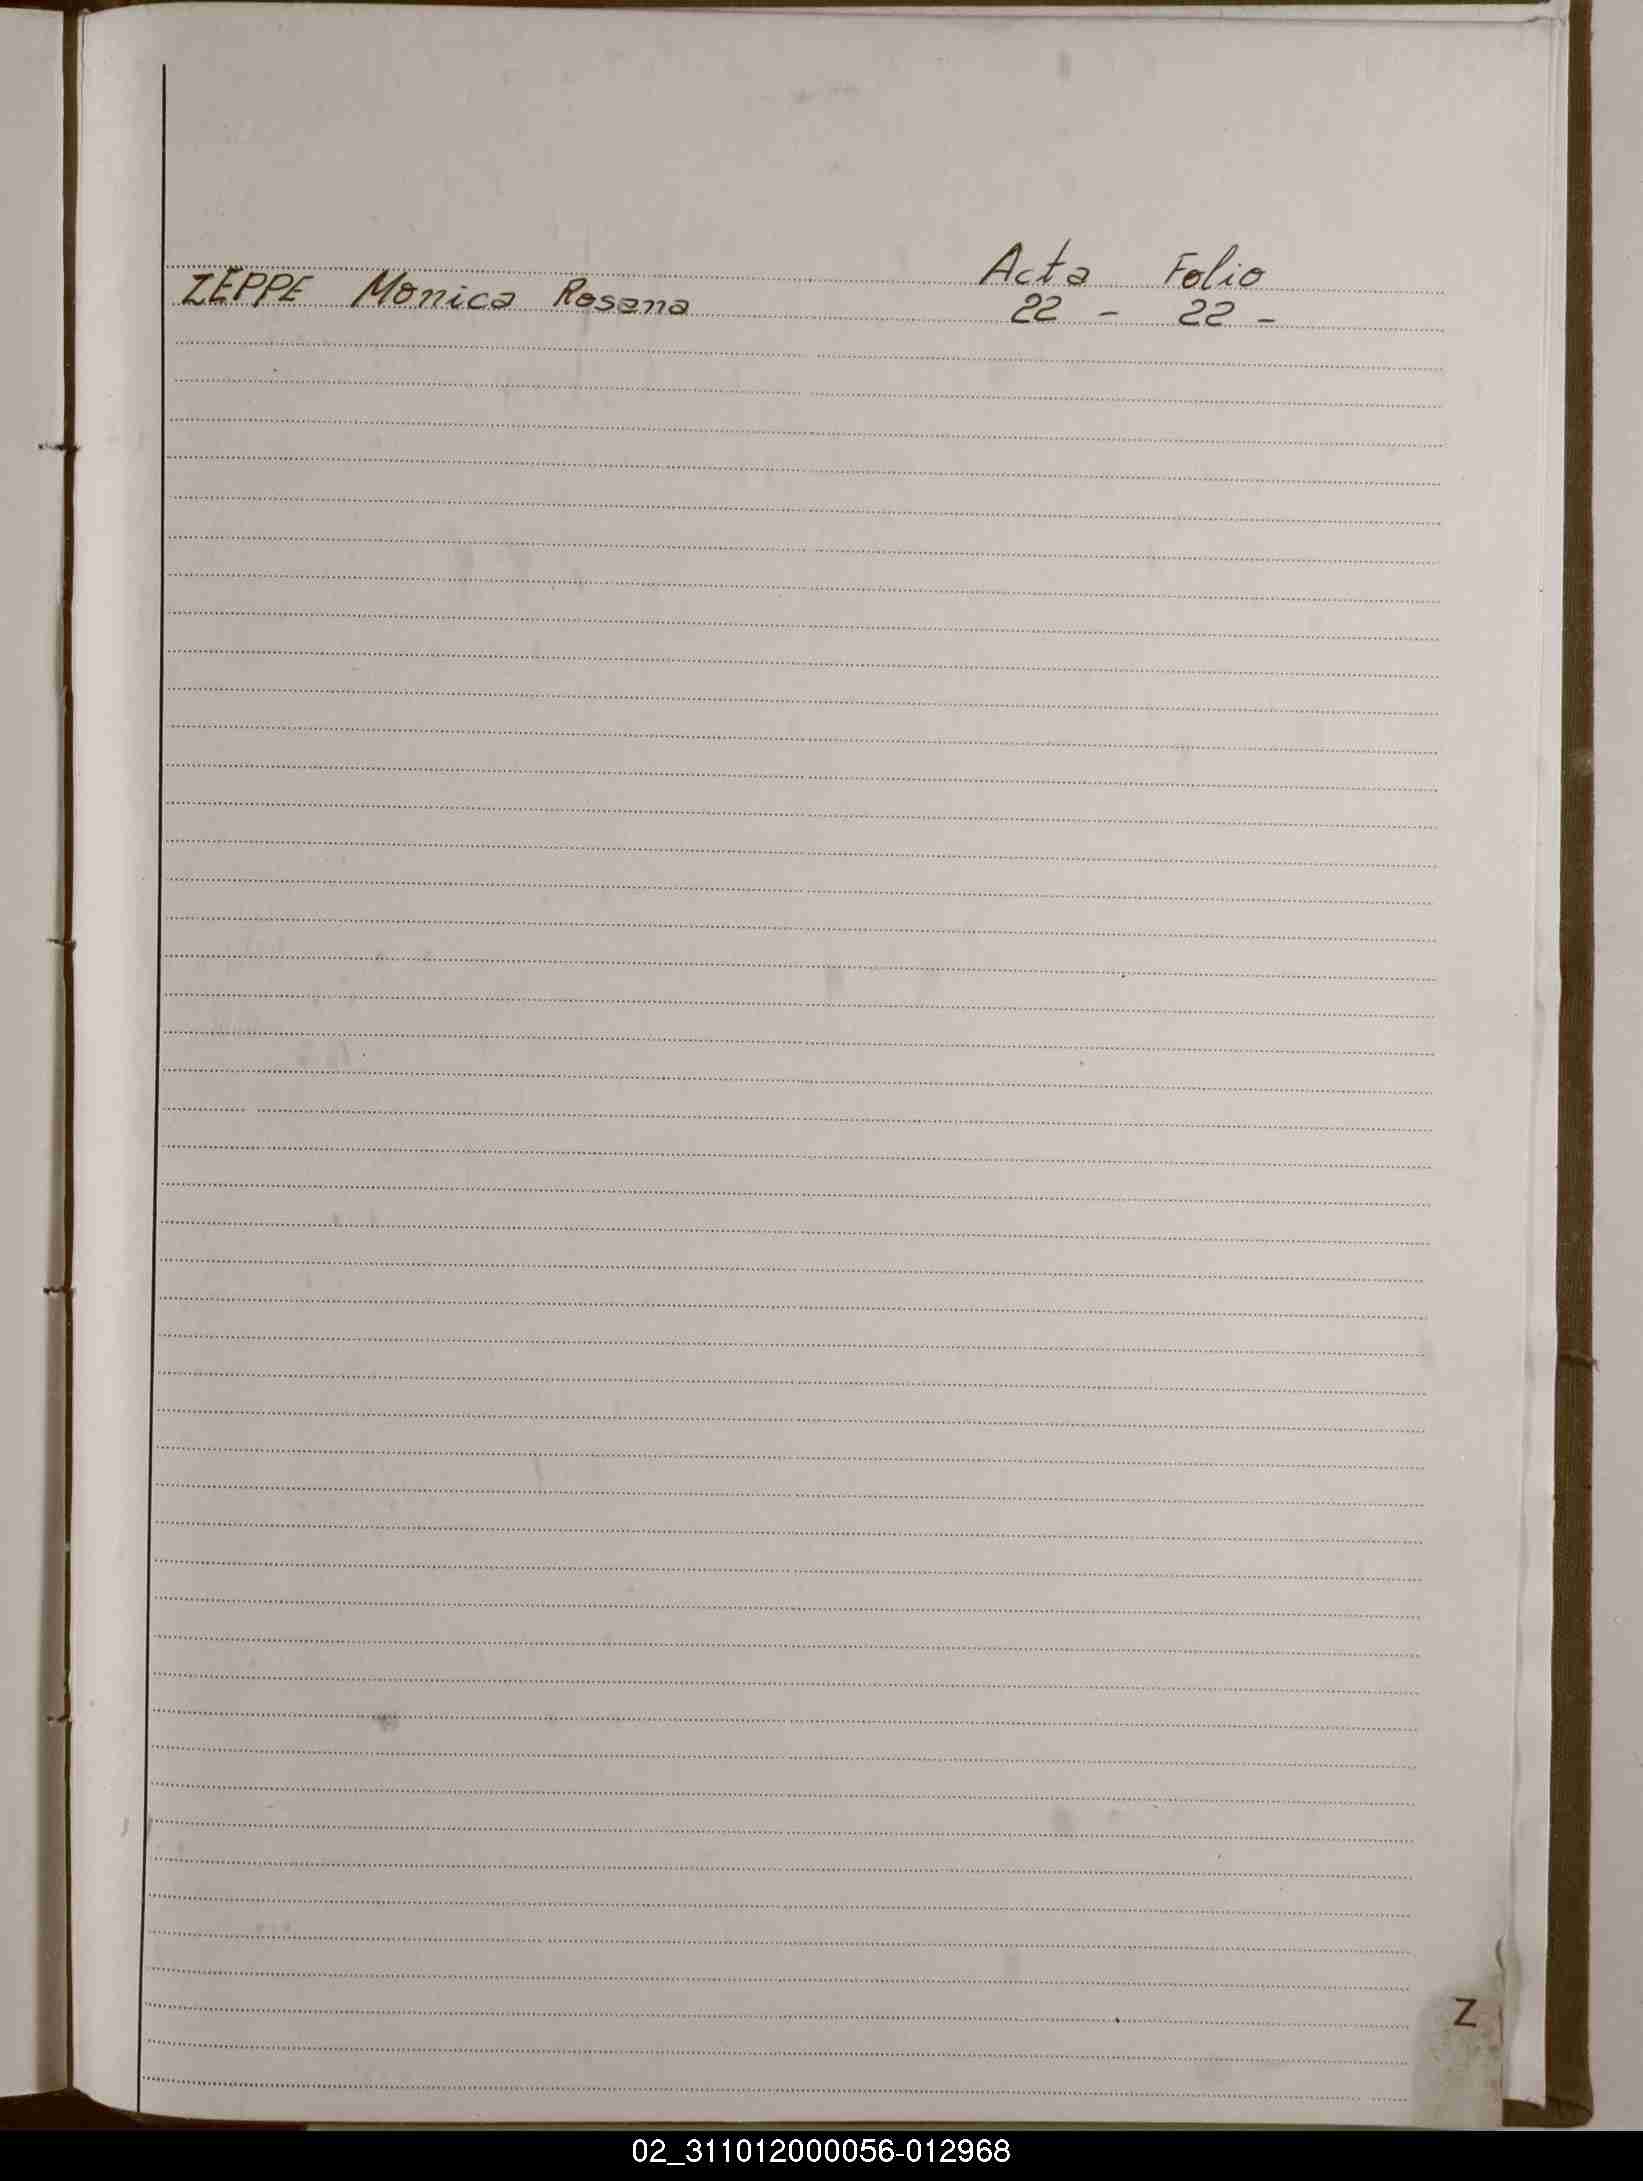 Acta Folio
ZEPPE Monica Rosana 22 - 22 -
Z
02_311012000056-012968